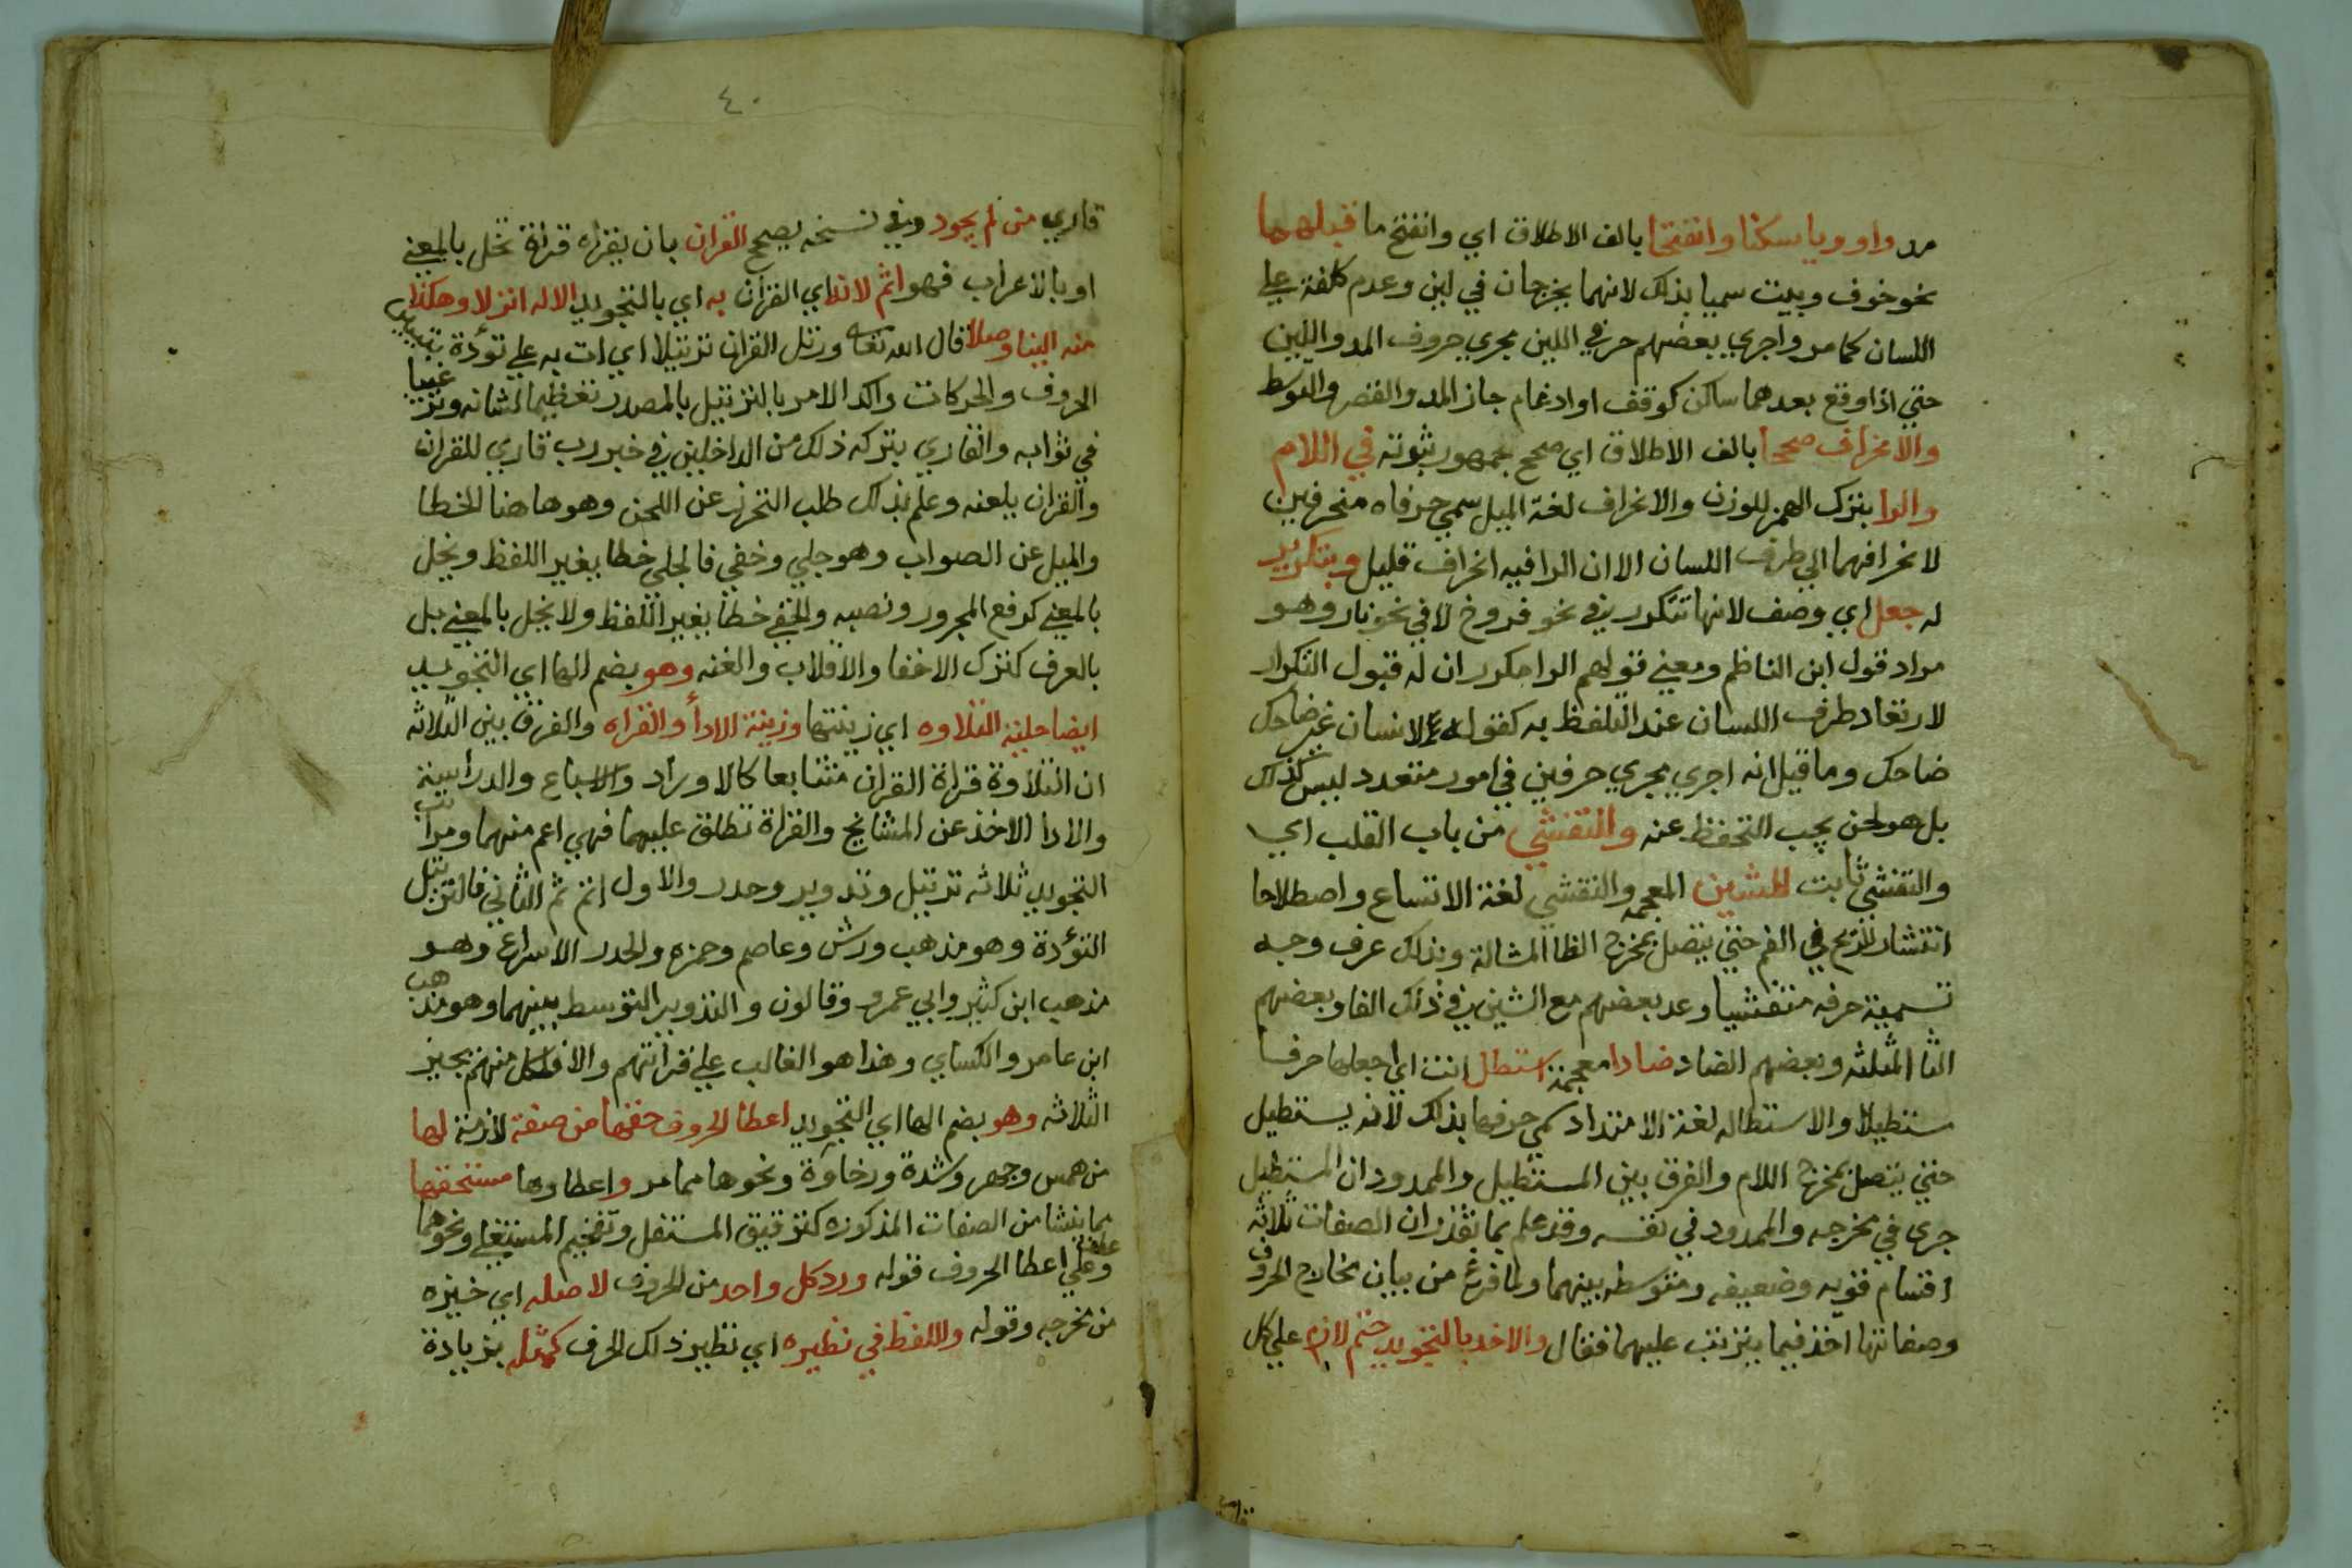 مر واو ويا سكنا وانفتحا بالف الاطلاق اي وانفتح ما قبلهما
نحو خوف وبيت سميا بذلك لانهما يخرجان في لين وعدم كلفة علي
اللسان كما مر واجري بعضهم حرفي اللين مجري حروف المد واللين
حتي اذا وقع بعدهما ساكن كوقف او ادغام جاز المد والقصر والتوسط
والانحراف صححا بالف الاطلاق اي صحح جمهور ثبوته في اللام
والرا بترك الهمز للوزن والانحراف لغة الميل سمي حرفاه منحرفين
لانحرافهما الي طرف اللسان الا ان الرا فيه انحراف قليل وبتكرير
له جعل اي وصف لانها تتكرر في نحو فروخ لا في نحو نار وهو
مراد قول ابن الناظم ومعني قولهم الرا مكرر ان له قبول التكرار
لارتعاد طرف اللسان عند التلفظ به كقولك لانسان غير ضاحك
ضاحك وما قيل انه اجري مجري حرفين في امور متعدد ليس كذلك
بل هو لحن يجب التحفظ عنه وللتفشي من باب القلب اي
والتفشي ثابت للشين المعجمه والتفشي لغة الاتساع واصطلاحا
انتشار الريح في الفم حتي يتصل بمخرج الظا المشالة وبذلك عرف وجه
تسمية حرفه متفشيا وعد بعضهم مع الشين في ذلك الفا وبعضهم
الثا المثلثه وبعضهم الضاد ضادا معجمة استطل انت اي اجعلها حرفا
مستطيلا والاستطاله لغة الامتداد سمي حرفها بذلك لانه يستطيل
حتي يتصل بمخرج اللام والفرق بين المستطيل والممدود ان المستطيل
جري في مخرجه والممدود في نفسه وقد علم بما تقرر ان الصفات ثلاثه
اقسام قويه وضعيفه ومتوسطه بينهما ولما فرغ من بيان مخارج الحروف
وصفاتها اخذ فيما يترتب عليهما فقال والاخذ بالتجويد حتم لازم علي كل
٤٠
قاري من لم يجود وفي نسخه يصحح القران بان يقراه قراة تخل بالمعني
او بالاعراب فهو اثم لانه اي القران به اي بالتجويد الاله انزلا وهكذا
منه الينا وصلا قال الله تعالي ورتل القران ترتيلا اي ات به علي تؤدة بتبيين
الحروف والحركات واكد الامر بالترتيل بالمصدر تعظيما لشانه وترغيبا
في ثوابه والقاري بتركه ذلك من الداخلين في خبر رب قاري للقران
والقران يلعنه وعلم بذلك طلب التحرز عن اللحن وهو هاهنا الخطا
والميل عن الصواب وهو جلي وخفي فالجلي خطا يغير اللفظ ويخل
بالمعني كرفع المجرور ونصبه والخفي خطا يغير اللفظ ولا يخل بالمعني بل
بالعرف كترك الاخفا والاقلاب والغنه وهو بضم الها اي التجويد
ايضا حلية التلاوه اي زينتها وزينة الادا والقراه والفرق بين الثلاثه
ان التلاوة قراة القران متتابعا كالاوراد والاسباع والدراسة
والادا الاخذ عن المشايخ والقراة تطلق عليهما فهي اعم منهما ومراتب
التجويد ثلاثه ترتيل وتدوير وحدر والاول اتم ثم الثاني فالترتيل
التؤدة وهو مذهب ورش وعاصم وحمزه والحدر الاسراع وهو
مذهب ابن كثير وابي عمرو وقالون والتدوير التوسط بينهما وهو مذهب
ابن عامر والكساي وهذا هو الغالب علي قراتهم والا فكل منهم يجيز
الثلاثه وهو بضم الها اي التجويد اعطا الحروف حقها من صفة لازمة لها
من همس وجهر وشدة ورخاوة ونحوها مما مر واعطاوها مستحقها
مما ينشا من الصفات المذكوره كترقيق المستفل وتفخيم المستعلي ونحوهما
وعطف علي اعطا الحروف قوله ورد كل واحد من الحروف لاصله اي حيزه
من مخرجه وقوله واللفظ في نظيره اي نظير ذلك الحرف كمثله بزيادة